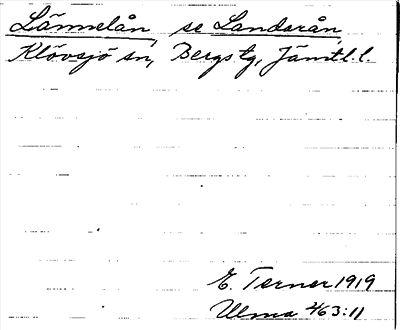 Lännelån, se Landarån,
Klövsjö sn, Bergs tg, Jämtl. l.
E. Terner 1919
Ulma 463:11